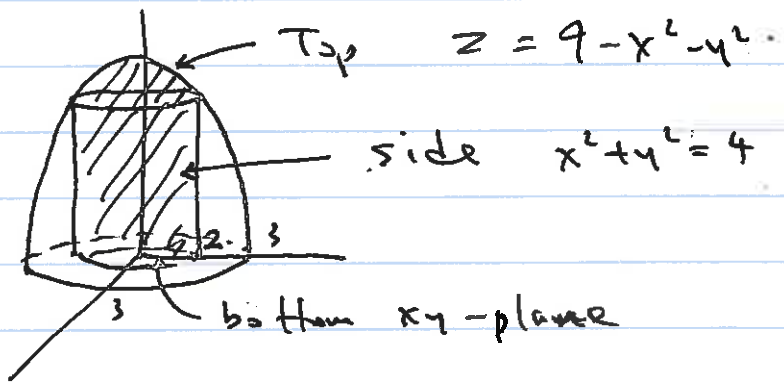 Top z = 9 - x² - y²
side x² + y² = 4
2. 3
3
bottom xy - plane